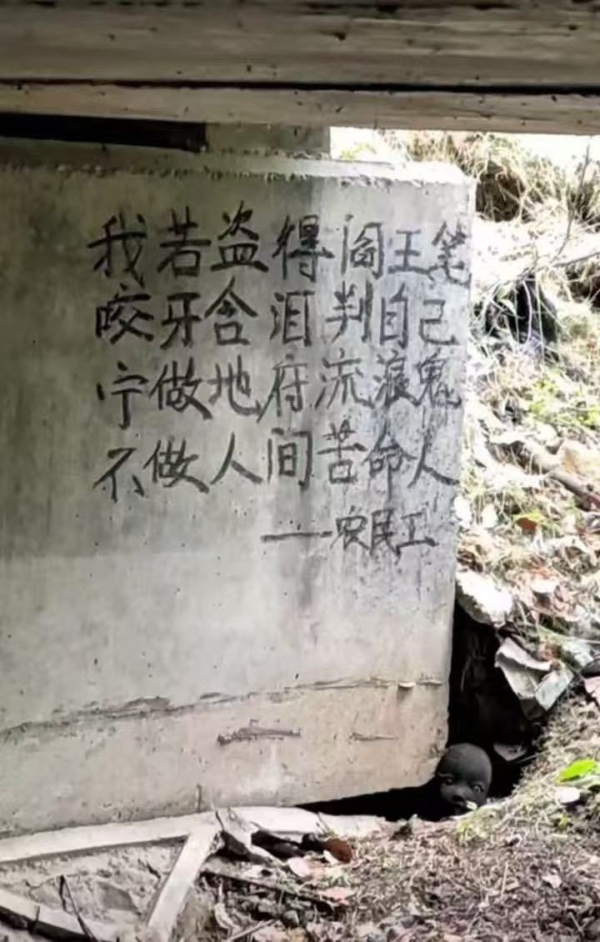 我若盗得阎王笔
咬牙含泪判自己
宁做地府流浪鬼
不做人间苦命人
——农民工